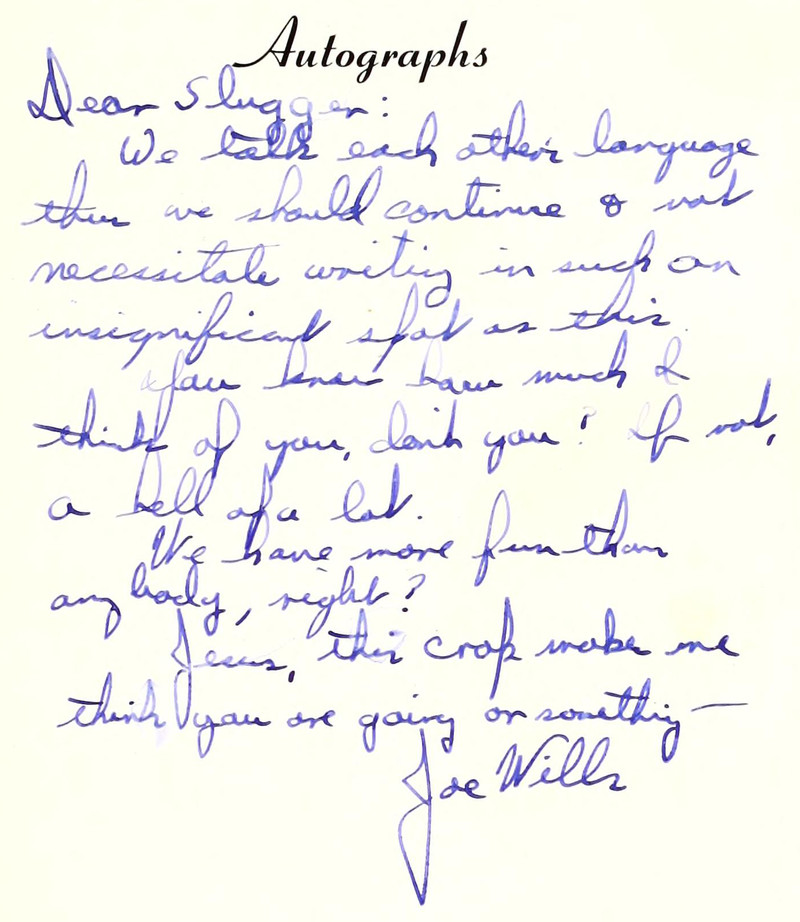 Autographs
Dear Slugger:
We talk each other's language
thus we should continue & not
necessitate writing in such an
insignificant spot as this.
You know how much I
think of you, don't you? If not,
a hell of a lot.
We have more fun than
anybody, right?
Jesus, this crap make me
think you are going or something—
Joe Wills